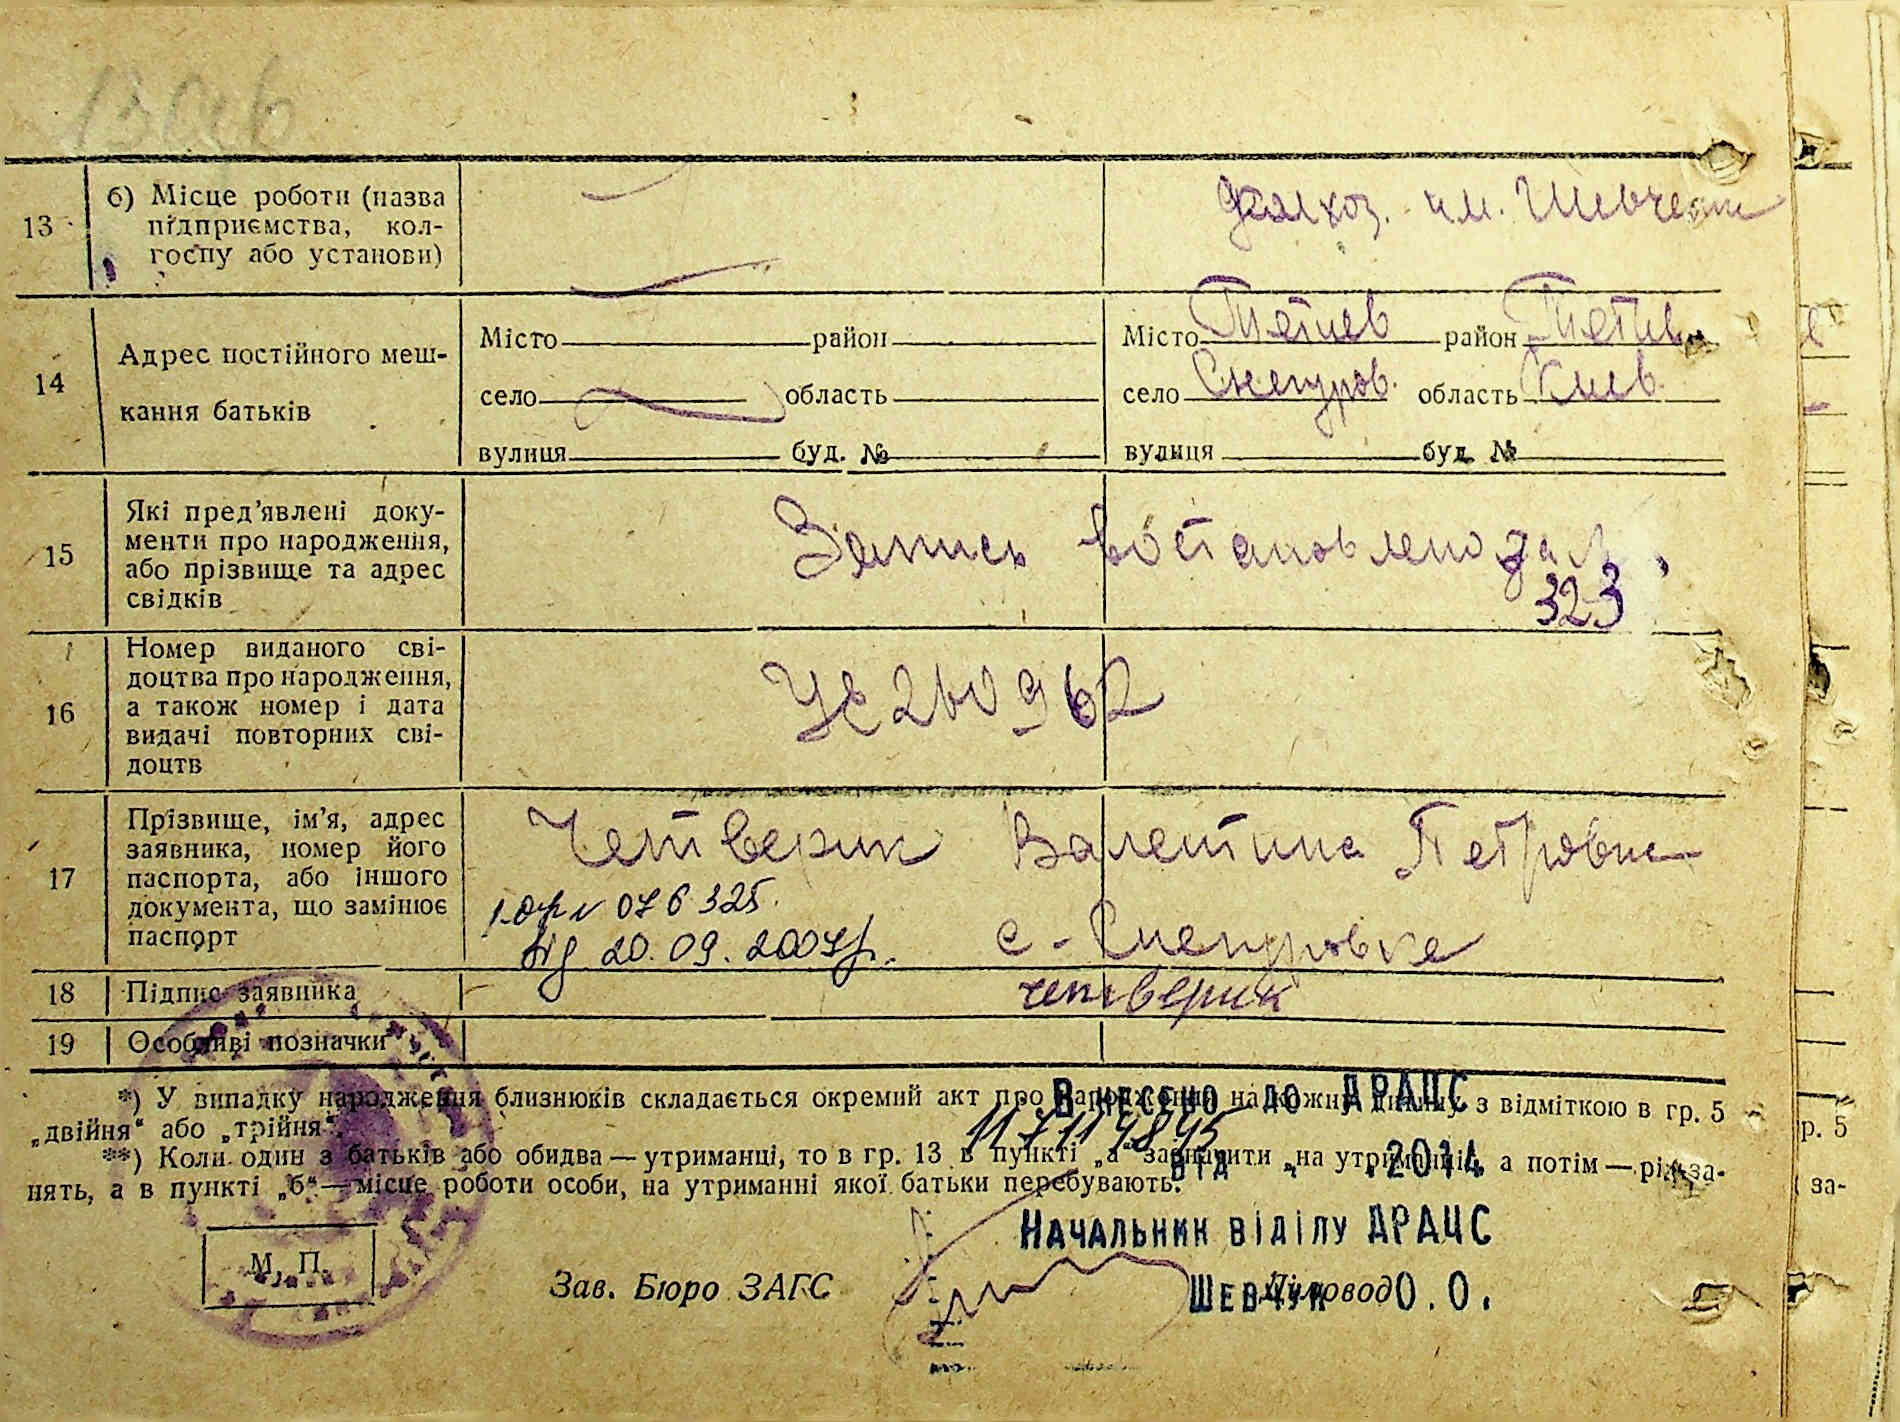 13
б) Місце роботи (назва
підприємства, кол-
госпу або установи)
колхоз. им. Шевченк
14
Адрес постійного меш-
кання батьків
Місто район
село область
вулиця буд. №
Місто Тетиев район Тетиев
село Снегуров. область Киев.
вулиця буд. №
15
Які пред'явлені доку-
менти про народження,
або прізвище та адрес
свідків
Запись востановлено за №
323
16
Номер виданого сві-
доцтва про народження,
а також номер і дата
видачі повторних сві-
доцтв
УС 260962
17
Прізвище, ім'я, адрес
заявника, номер його
паспорта, або іншого
документа, що замінює
паспорт
Четверик Валентина Петровна
076325.
від 20.09.2007р.
с. Снегуровка
18
Підпис заявника
четверик
19
Особливі позначки
*) У випадку народження близнюків складається окремий акт про народження на кожну дитину з відміткою в гр. 5
„двійня“ або „трійня“.
**) Коли один з батьків або обидва — утриманці, то в гр. 13 в пункті „а“ зазначити „на утриманні“, а потім — рід за-
нять, а в пункті „б“ — місце роботи особи, на утриманні якої батьки перебувають.
р. 5
за-
Внесено до ДРАЦС
від 2014
Начальник відділу ДРАЦС
Шевчук О.О.
М. П.
Зав. Бюро ЗАГС
Діловод